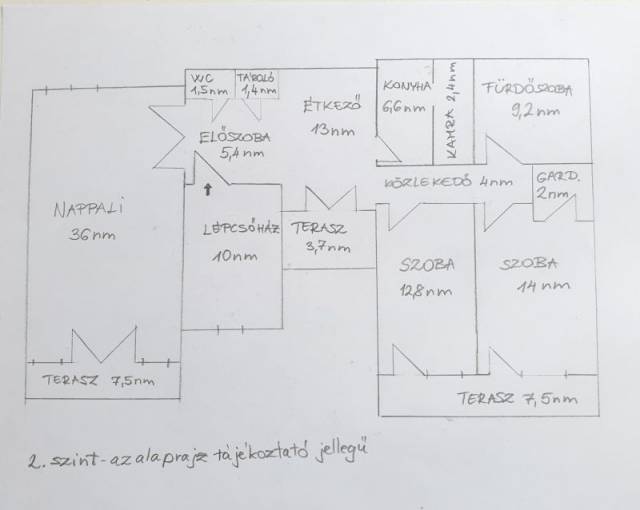 WC
1,5nm
TÁROLÓ
1,4nm
ÉTKEZŐ
13nm
KONYHA
6,6nm
KAMRA 2,4nm
FÜRDŐSZOBA
9,2nm
ELŐSZOBA
5,4nm
KÖZLEKEDŐ 4nm
GARD.
2nm
NAPPALI
36nm
LÉPCSŐHÁZ
10nm
TERASZ
3,7nm
SZOBA
12,8nm
SZOBA
14nm
TERASZ 7,5nm
TERASZ 7,5nm
2. szint-az alaprajz tájékoztató jellegű